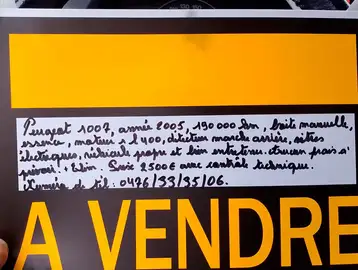 Peugeot 1007, année 2005, 190000 km, boite manuelle,
essence, moteur 1 l 400, détecteur marche arrière, vitres
électriques, véhicule propre et bien entretenu. Aucun frais à
prévoir. Prix 2500€ avec contrôle technique.
Numéro de tél: 0476/33/35/06.
A VENDRE